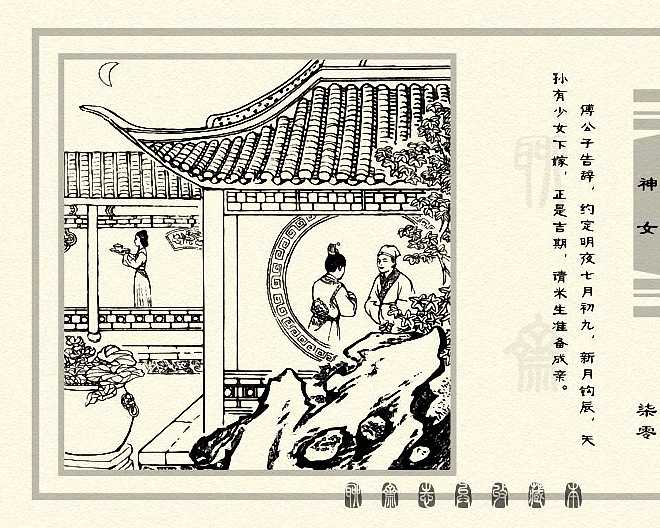 傅公子告辞，约定明夜七月初九，新月钩辰，天
孙有少女下嫁，正是吉期，请米生准备成亲。
神女
柒零
聊斋志异收藏本